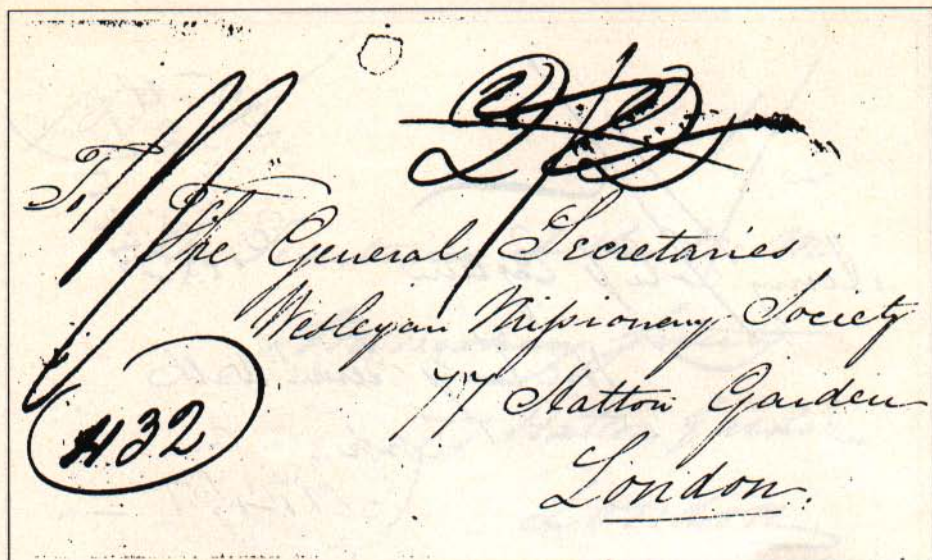 To
The General Secretaries
Wesleyan Missionary Society
77 Hatton Garden
London.
432